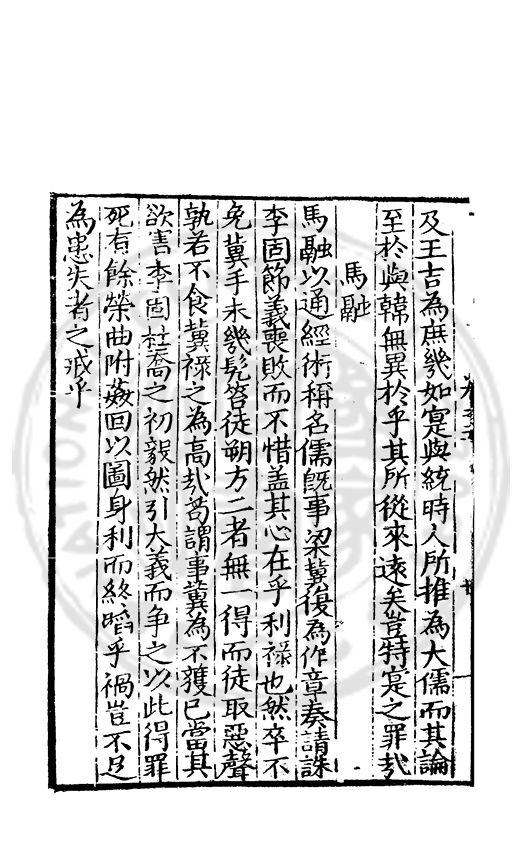 及王吉為庶幾如寔與統時人所推為大儒而其論
至於與韓無異於乎其所從來遠矣豈特寔之罪哉
馬融
馬融以通經術稱名儒既事梁冀復為作章奏請誅
李固節義喪敗而不惜盖其心在乎利祿也然卒不
免冀手未幾髡笞徒朔方二者無一得而徒取惡聲
孰若不食冀祿之為高哉苟謂事冀為不獲已當其
欲害李固杜喬之初毅然引大義而争之以此得罪
死有餘榮曲附姦回以圖身利而終蹈乎禍豈不足
為患失者之戒乎